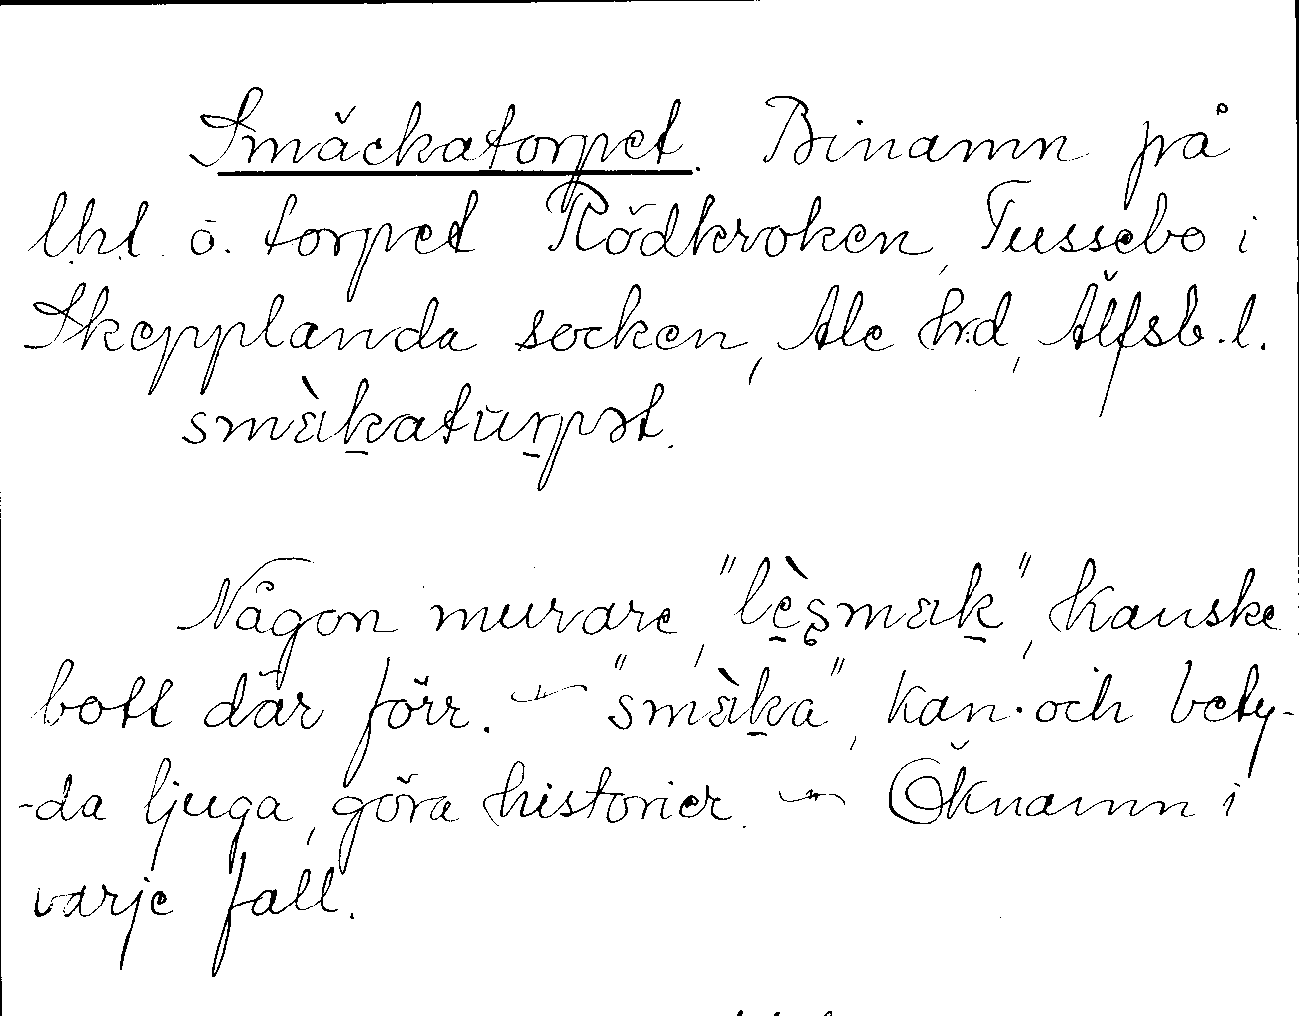 Smäckatorpet. Binamn på
lht. o. torpet Rödkroken, Tussebo i
Skepplanda socken, Ale hd, Älfsb. l.
smὰkatùrpət.
Någon murare, "lèsmäk", kanske
bott där förr. — "smὰka", kan och bety-
-da ljuga, göra historier. — Öknamn i
varje fall.